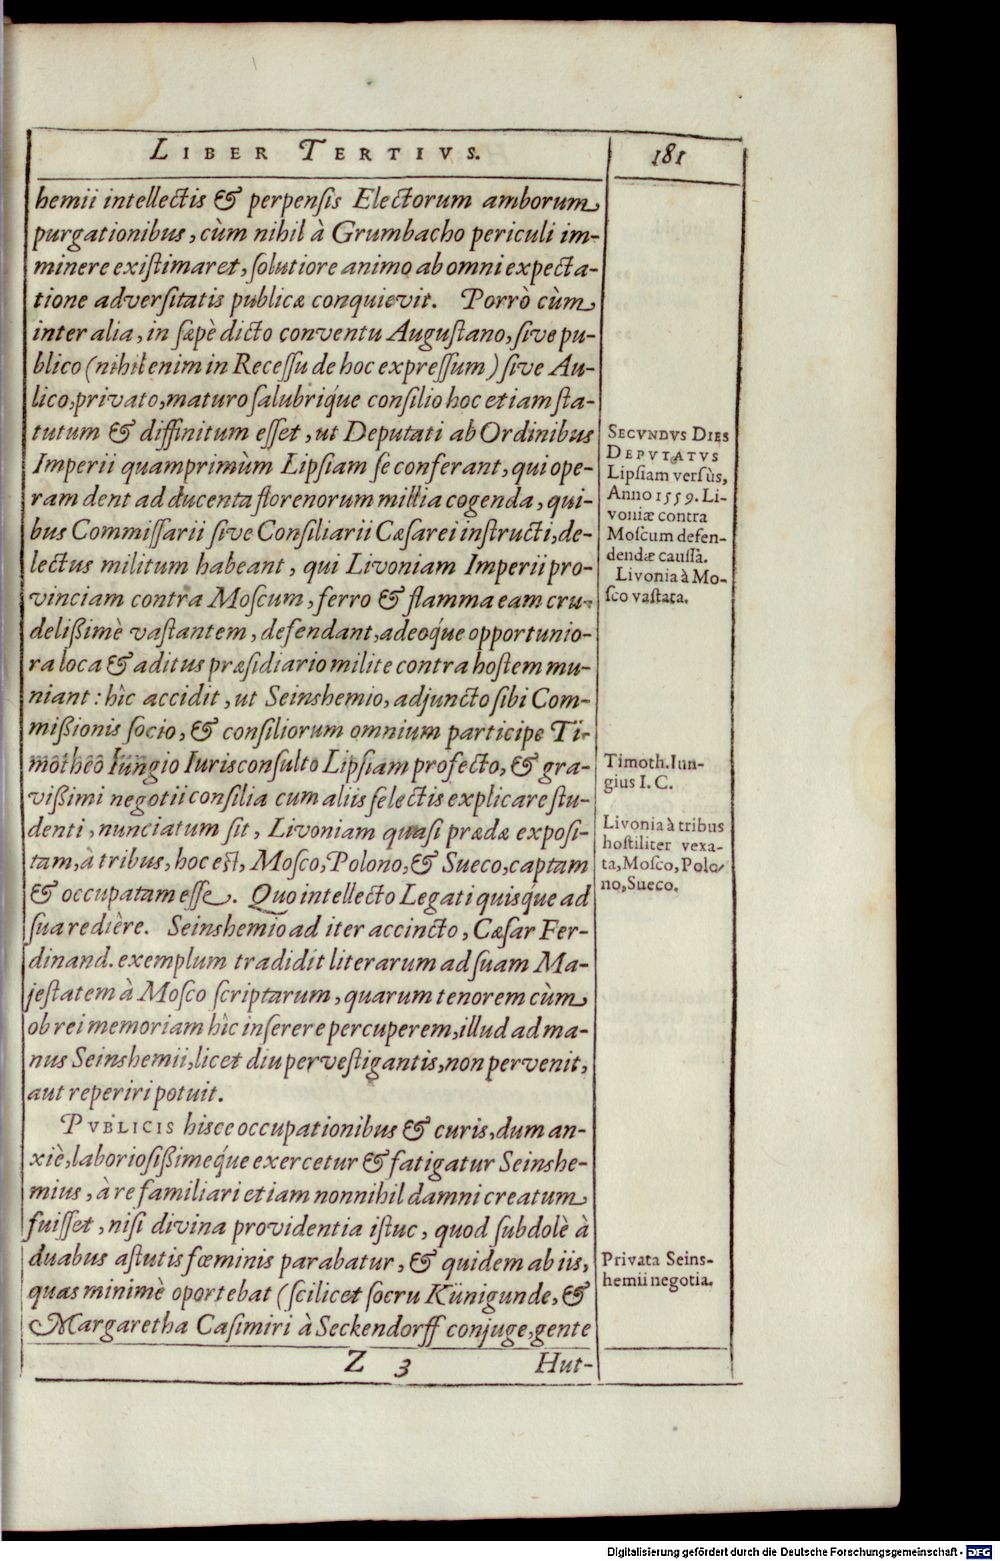 LIBER TERTIVS.
181
hemii intellectis & perpensis Electorum amborum
purgationibus, cùm nihil à Grumbacho periculi im-
minere existimaret, solutiore animo ab omni expecta-
tione adversitatis publicæ conquievit. Porrò cùm
inter alia, in sæpè dicto conventu Augustano, sive pu-
blico (nihil enim in Recessu de hoc expressum) sive Au-
lico, privato, maturo salubriq́ue consilio hoc etiam sta-
tutum & diffinitum esset, ut Deputati ab Ordinibus
Imperii quamprimùm Lipsiam se conferant, qui ope-
ram dent ad ducenta florenorum millia cogenda, qui-
bus Commissarii sive Consiliarii Cæsarei instructi, de-
lectus militum habeant, qui Livoniam Imperii pro-
vinciam contra Moscum, ferro & flamma eam cru-
delißimè vastantem, defendant, adeoq́ue opportunio-
ra loca & aditus præsidiario milite contra hostem mu-
niant: hîc accidit, ut Seinshemio, adjuncto sibi Com-
mißionis socio, & consiliorum omnium participe Ti-
motheo Iungio Iurisconsulto Lipsiam profecto, & gra-
vißimi negotii consilia cum aliis selectis explicare stu-
denti, nunciatum sit, Livoniam quasi prædæ exposi-
tam, à tribus, hoc est, Mosco, Polono, & Sueco, captam
& occupatam esse. Quo intellecto Legati quisq́ue ad
sua rediêre. Seinshemio ad iter accincto, Cæsar Fer-
dinand. exemplum tradidit literarum ad suam Ma-
jestatem à Mosco scriptarum, quarum tenorem cùm
ob rei memoriam hîc inserere percuperem, illud ad ma-
nus Seinshemii, licet diu pervestigantis, non pervenit,
aut reperiri potuit.
PVBLICIS hisce occupationibus & curis, dum an-
xiè, laboriosißimeq́ue exercetur & fatigatur Seinshe-
mius, à re familiari etiam nonnihil damni creatum
fuisset, nisi divina providentia istuc, quod subdolè à
duabus astutis fœminis parabatur, & quidem ab iis,
quas minimè oportebat (scilicet socru Künigunde, &
Margaretha Casimiri à Seckendorff conjuge, gente
Z 3
Hut-
SECVNDVS DIES
DEPVTATVS
Lipsiam versùs,
Anno 1559. Li-
voniæ contra
Moscum defen-
dendæ caussâ.
Livonia à Mo-
sco vastata.
Timoth. Iun-
gius I. C.
Livonia à tribus
hostiliter vexa-
ta, Mosco, Polo-
no, Sueco.
Privata Seins-
hemii negotia.
Digitalisierung gefördert durch die Deutsche Forschungsgemeinschaft - DFG